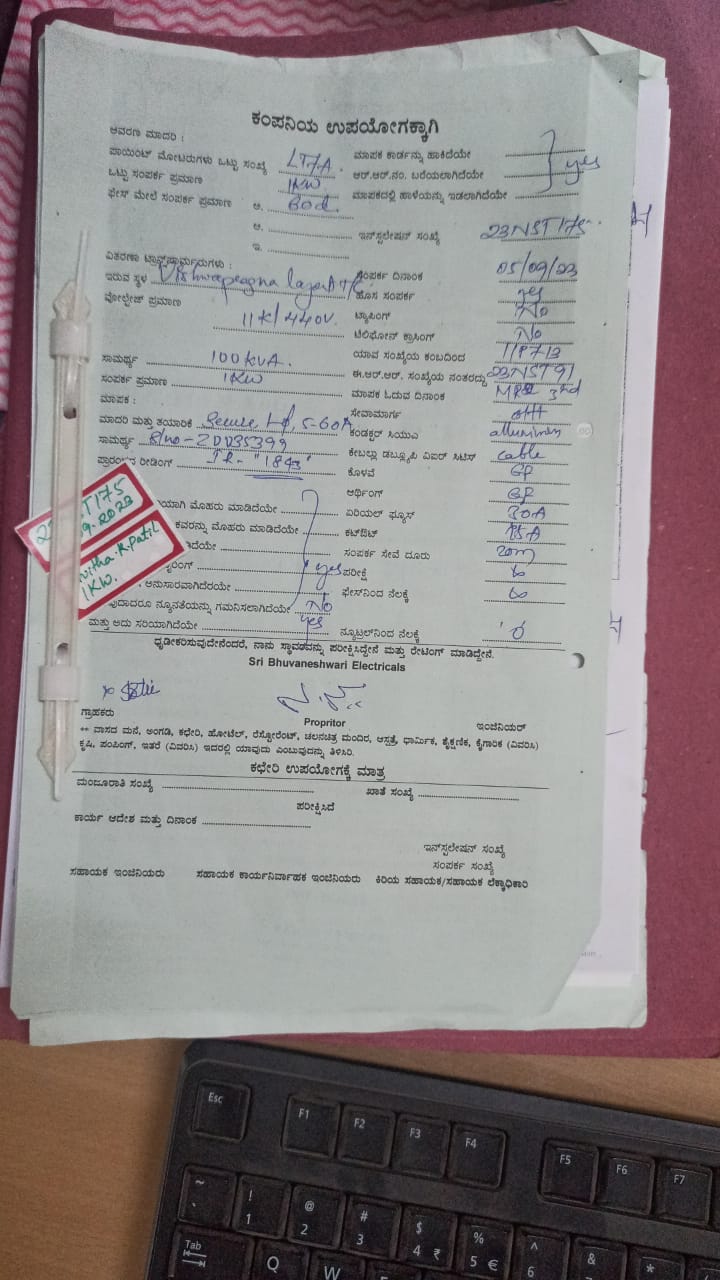 ಕಂಪನಿಯ ಉಪಯೋಗಕ್ಕಾಗಿ
ಆವರಣ ಮಾದರಿ :
ಪಾಯಿಂಟ್ ಮೋಟರುಗಳು ಒಟ್ಟು ಸಂಖ್ಯೆ LT7A. ಮಾಪಕ ಕಾರ್ಡನ್ನು ಹಾಕಿದೆಯೇ
ಒಟ್ಟು ಸಂಪರ್ಕ ಪ್ರಮಾಣ 1KW ಆರ್.ಆರ್.ನಂ. ಬರೆಯಲಾಗಿದೆಯೇ yes
ಫೇಸ್ ಮೇಲೆ ಸಂಪರ್ಕ ಪ್ರಮಾಣ ಅ. ಮಾಪಕದಲ್ಲಿ ಹಾಳೆಯನ್ನು ಇಡಲಾಗಿದೆಯೇ
ಆ. ಇನ್‌ಸ್ಟಲೇಷನ್ ಸಂಖ್ಯೆ 23NST175
ಇ.
ವಿತರಣಾ ಟ್ರಾನ್ಸ್‌ಫಾರ್ಮರುಗಳು : ಸಂಪರ್ಕ ದಿನಾಂಕ 05/09/23
ಇರುವ ಸ್ಥಳ Vishwapragna layout T/C ಹೊಸ ಸಂಪರ್ಕ yes
ವೋಲ್ಟೇಜ್ ಪ್ರಮಾಣ 11K/440V. ಟ್ಯಾಪಿಂಗ್ No
ಟೆಲಿಫೋನ್ ಕ್ರಾಸಿಂಗ್ No
ಸಾಮರ್ಥ್ಯ 100KVA. ಯಾವ ಸಂಖ್ಯೆಯ ಕಂಬದಿಂದ
ಸಂಪರ್ಕ ಪ್ರಮಾಣ 1KW ಈ.ಆರ್.ಆರ್. ಸಂಖ್ಯೆಯ ನಂತರದ್ದು 22NST91
ಮಾಪಕ : ಮಾಪಕ ಓದುವ ದಿನಾಂಕ 3rd
ಮಾದರಿ ಮತ್ತು ತಯಾರಿಕೆ Secure 1φ, 5-60A ಸೇವಾಮಾರ್ಗ OHT
ಸಾಮರ್ಥ್ಯ S/no-ZDD35399 ಕಂಡಕ್ಟರ್ ಸಿಯುಎ alluminim
ಪ್ರಾರಂಭಿಕ ರೀಡಿಂಗ್ IR- "1843" ಕೇಬಲ್ಲು ಡಬ್ಲ್ಯೂಪಿ ಎಐರ್ ಸಿಟಿಸ್ cable
ಕೊಳವೆ GP
ಆರ್ಥಿಂಗ್ GP
ಯಾಗಿ ಮೊಹರು ಮಾಡಿದೆಯೇ ಏರಿಯಲ್ ಫ್ಯೂಸ್ 30A
ಕವರನ್ನು ಮೊಹರು ಮಾಡಿದೆಯೇ ಕಟ್‌ಔಟ್ 15A
ಸಂಪರ್ಕ ಸೇವೆ ದೂರು 20m
yes ಪರೀಕ್ಷೆ ∞
ಅನುಸಾರವಾಗಿದೆಯೇ ಫೇಸ್‌ನಿಂದ ನೆಲಕ್ಕೆ ∞
ವುದಾದರೂ ನ್ಯೂನತೆಯನ್ನು ಗಮನಿಸಲಾಗಿದೆಯೇ No
ಮತ್ತು ಅದು ಸರಿಯಾಗಿದೆಯೇ yes ನ್ಯೂಟ್ರಲ್‌ನಿಂದ ನೆಲಕ್ಕೆ
T175
09.2023
K.Patil
1KW.
ಧೃಡೀಕರಿಸುವುದೇನೆಂದರೆ, ನಾನು ಸ್ಥಾವರವನ್ನು ಪರೀಕ್ಷಿಸಿದ್ದೇನೆ ಮತ್ತು ರೇಟಿಂಗ್ ಮಾಡಿದ್ದೇನೆ.
Sri Bhuvaneshwari Electricals
ಗ್ರಾಹಕರು Propritor ಇಂಜಿನಿಯರ್
++ ವಾಸದ ಮನೆ, ಅಂಗಡಿ, ಕಛೇರಿ, ಹೋಟೆಲ್, ರೆಸ್ಟೋರೆಂಟ್, ಚಲನಚಿತ್ರ ಮಂದಿರ, ಆಸ್ಪತ್ರೆ, ಧಾರ್ಮಿಕ, ಶೈಕ್ಷಣಿಕ, ಕೈಗಾರಿಕ (ವಿವರಿಸಿ)
ಕೃಷಿ, ಪಂಪಿಂಗ್, ಇತರೆ (ವಿವರಿಸಿ) ಇದರಲ್ಲಿ ಯಾವುದು ಎಂಬುವುದನ್ನು ತಿಳಿಸಿರಿ.
ಕಛೇರಿ ಉಪಯೋಗಕ್ಕೆ ಮಾತ್ರ
ಮಂಜೂರಾತಿ ಸಂಖ್ಯೆ ಖಾತೆ ಸಂಖ್ಯೆ
ಪರೀಕ್ಷಿಸಿದೆ
ಕಾರ್ಯ ಆದೇಶ ಮತ್ತು ದಿನಾಂಕ
ಇನ್‌ಸ್ಟಲೇಷನ್ ಸಂಖ್ಯೆ
ಸಂಪರ್ಕ ಸಂಖ್ಯೆ
ಸಹಾಯಕ ಇಂಜಿನಿಯರು ಸಹಾಯಕ ಕಾರ್ಯನಿರ್ವಾಹಕ ಇಂಜಿನಿಯರು ಕಿರಿಯ ಸಹಾಯಕ/ಸಹಾಯಕ ಲೆಕ್ಕಾಧಿಕಾರಿ
Esc F1 F2 F3 F4 F5 F6 F7
~ ` ! 1 @ 2 # 3 $ 4 ₹ % 5 € ^ 6 & *
Tab Q W